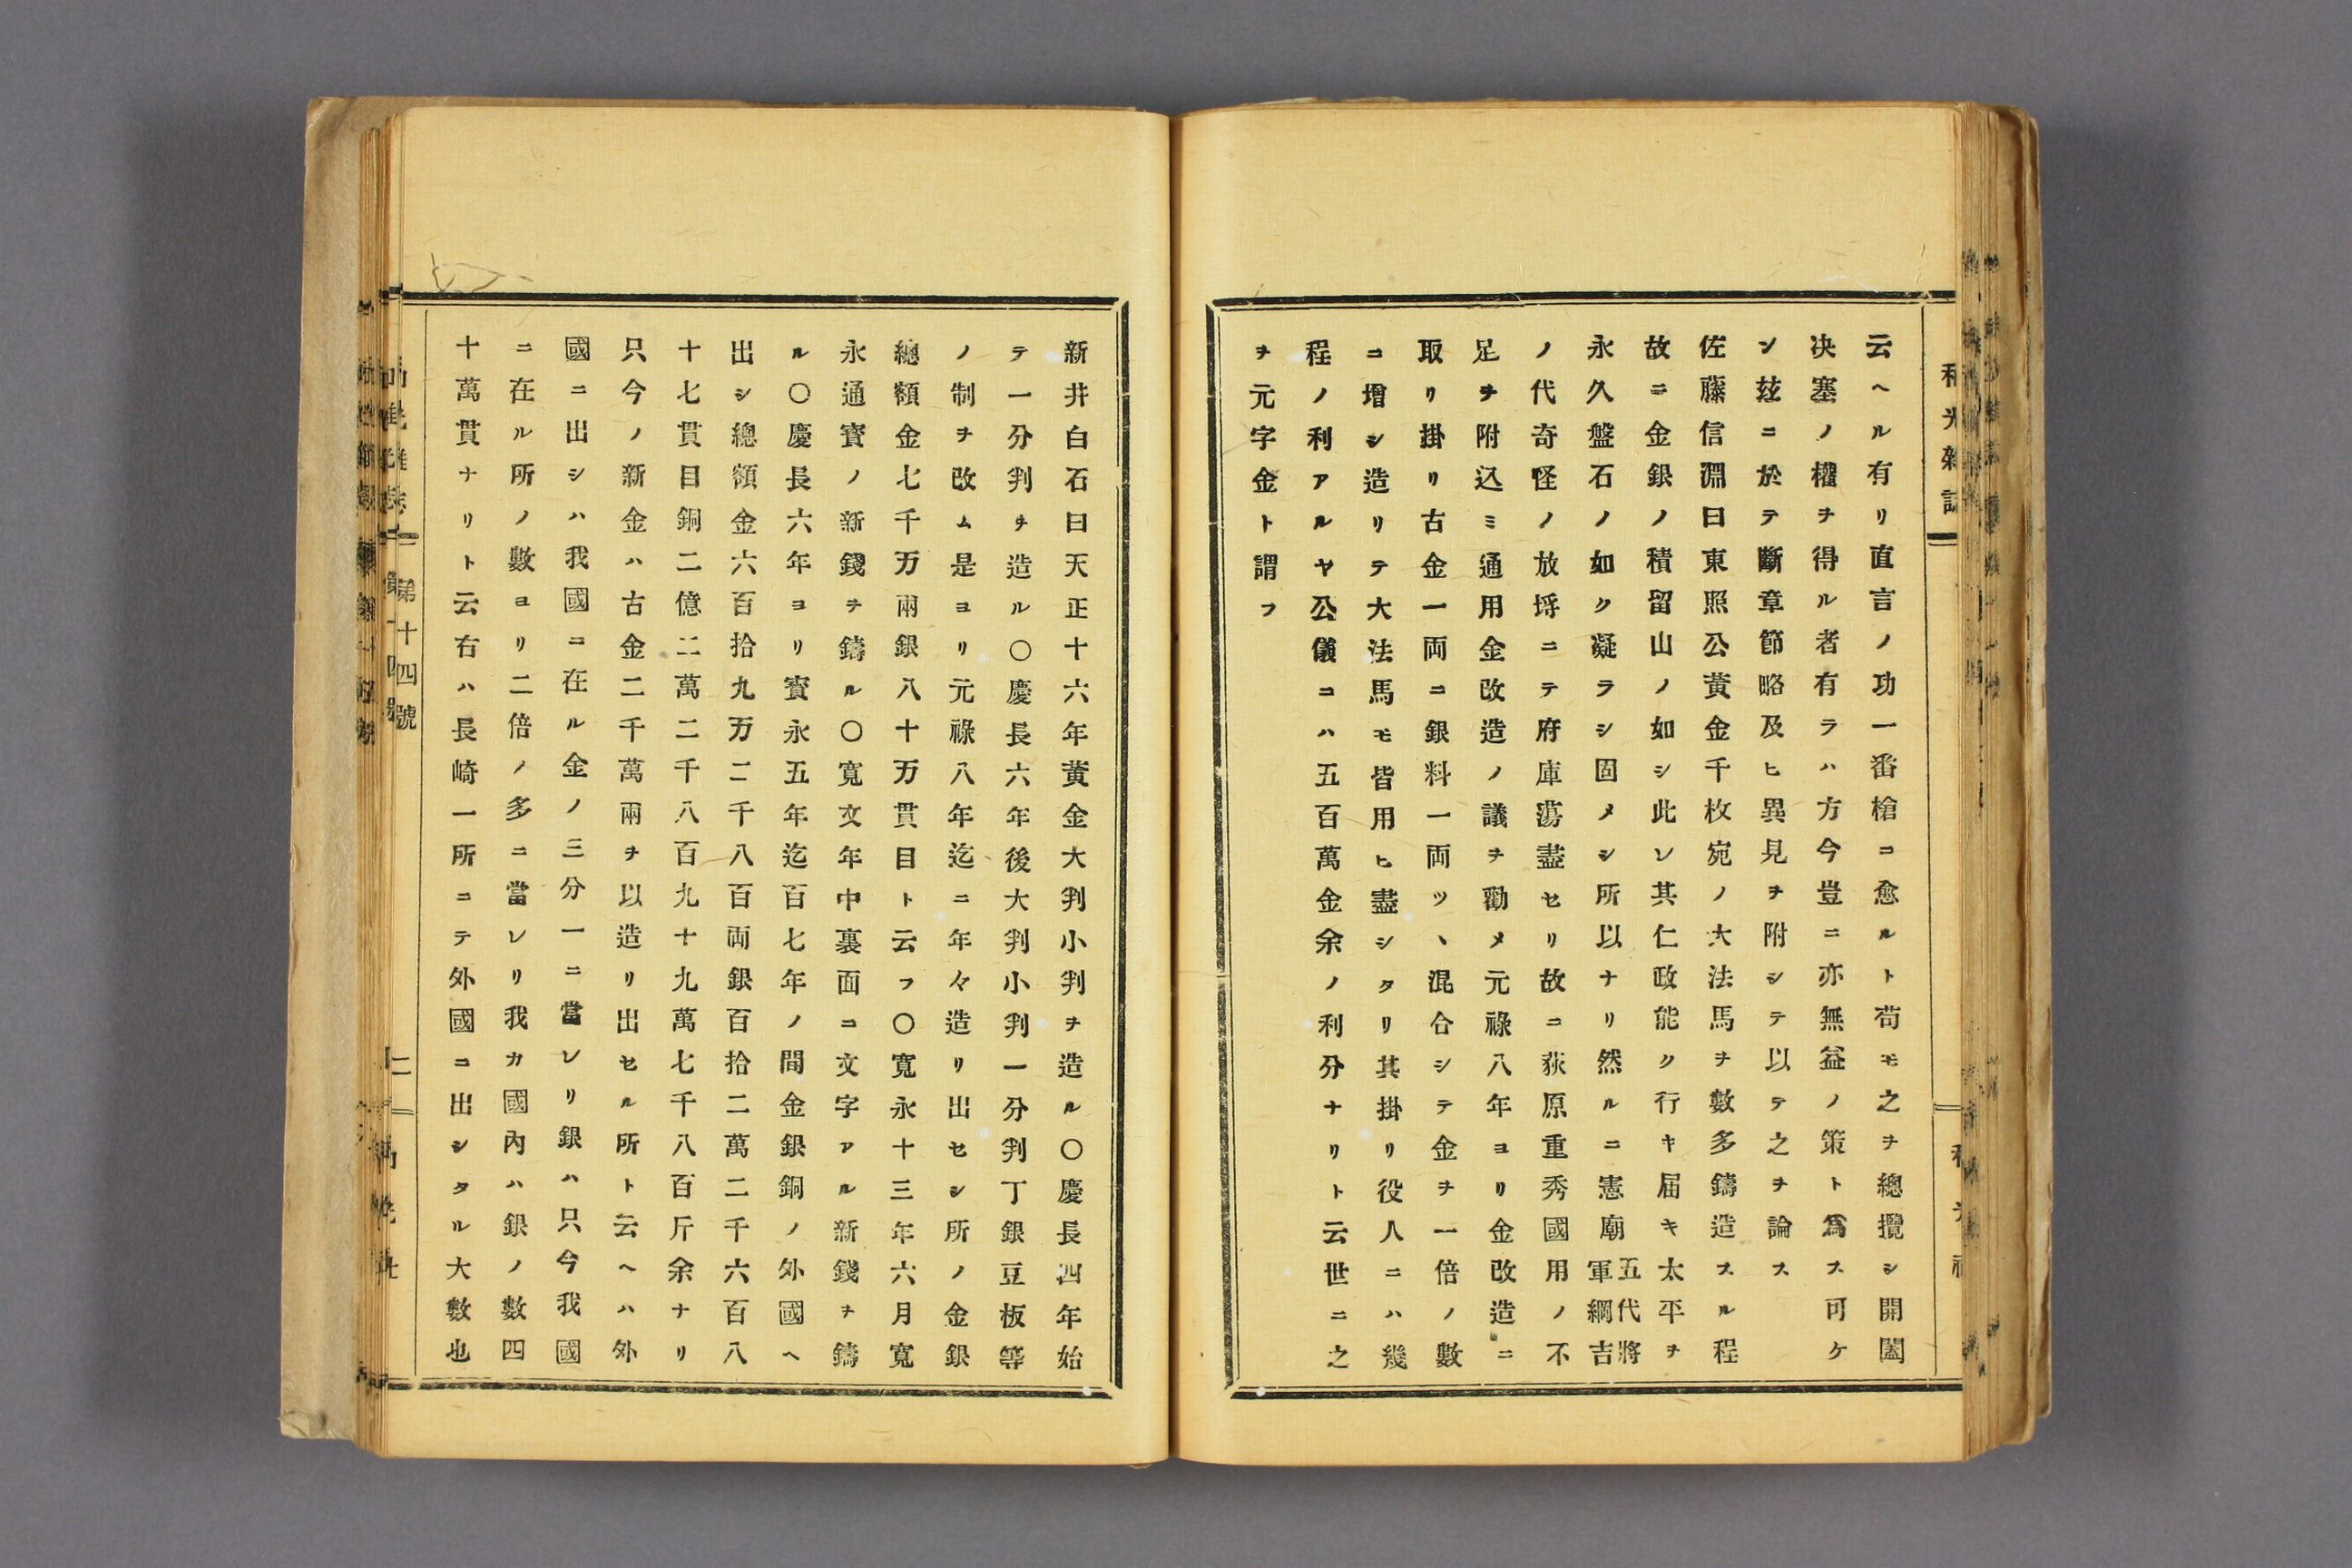 云ヘル有リ直言ノ功一番槍ニ愈ルト苟モ之ヲ總攬シ開闔
决塞ノ權ヲ得ル者有ラハ方今豈ニ亦無益ノ策ト爲ス可ケ
ン玆ニ於テ斷章節略及ヒ異見ヲ附シテ以テ之ヲ論ス
佐藤信淵曰東照公黄金千枚宛ノ大法馬ヲ數多鑄造スル程
故ニ金銀ノ積留山ノ如シ此レ其仁政能ク行キ届キ太平ヲ
永久盤石ノ如ク凝ラシ固メシ所以ナリ然ルニ憲廟五代將軍綱吉
ノ代奇怪ノ放埓ニテ府庫蕩盡セリ故ニ荻原重秀國用ノ不
足ヲ附込ミ通用金改造ノ議ヲ勸メ元祿八年ヨリ金改造ニ
取リ掛リ古金一両ニ銀料一両ツヽ混合シテ金ヲ一倍ノ數
ニ增シ造リテ大法馬モ皆用ヒ盡シタリ其掛リ役人ニハ幾
程ノ利アルヤ公儀ニハ五百萬金余ノ利分ナリト云世ニ之
ヲ元字金ト謂フ
新井白石曰天正十六年黄金大判小判ヲ造ル〇慶長四年始
テ一分判ヲ造ル〇慶長六年後大判小判一分判丁銀豆板等
ノ制ヲ改ム是ヨリ元祿八年迄ニ年々造リ出セシ所ノ金銀
總額金七千万兩銀八十万貫目ト云フ〇寬永十三年六月寬
永通寳ノ新錢ヲ鑄ル〇寬文年中裏面ニ文字アル新錢ヲ鑄
ル〇慶長六年ヨリ寳永五年迄百七年ノ間金銀銅ノ外國ヘ
出シ總額金六百拾九万二千八百両銀百拾二萬二千六百八
十七貫目銅二億二萬二千八百九十九萬七千八百斤余ナリ
只今ノ新金ハ古金二千萬兩ヲ以造リ出セル所ト云ヘハ外
國ニ出シハ我國ニ在ル金ノ三分一ニ當レリ銀ハ只今我國
ニ在ル所ノ數ヨリ二倍ノ多ニ當レリ我カ國內ハ銀ノ數四
十萬貫ナリト云右ハ長崎一所ニテ外國ニ出シタル大數也
第十四號
二